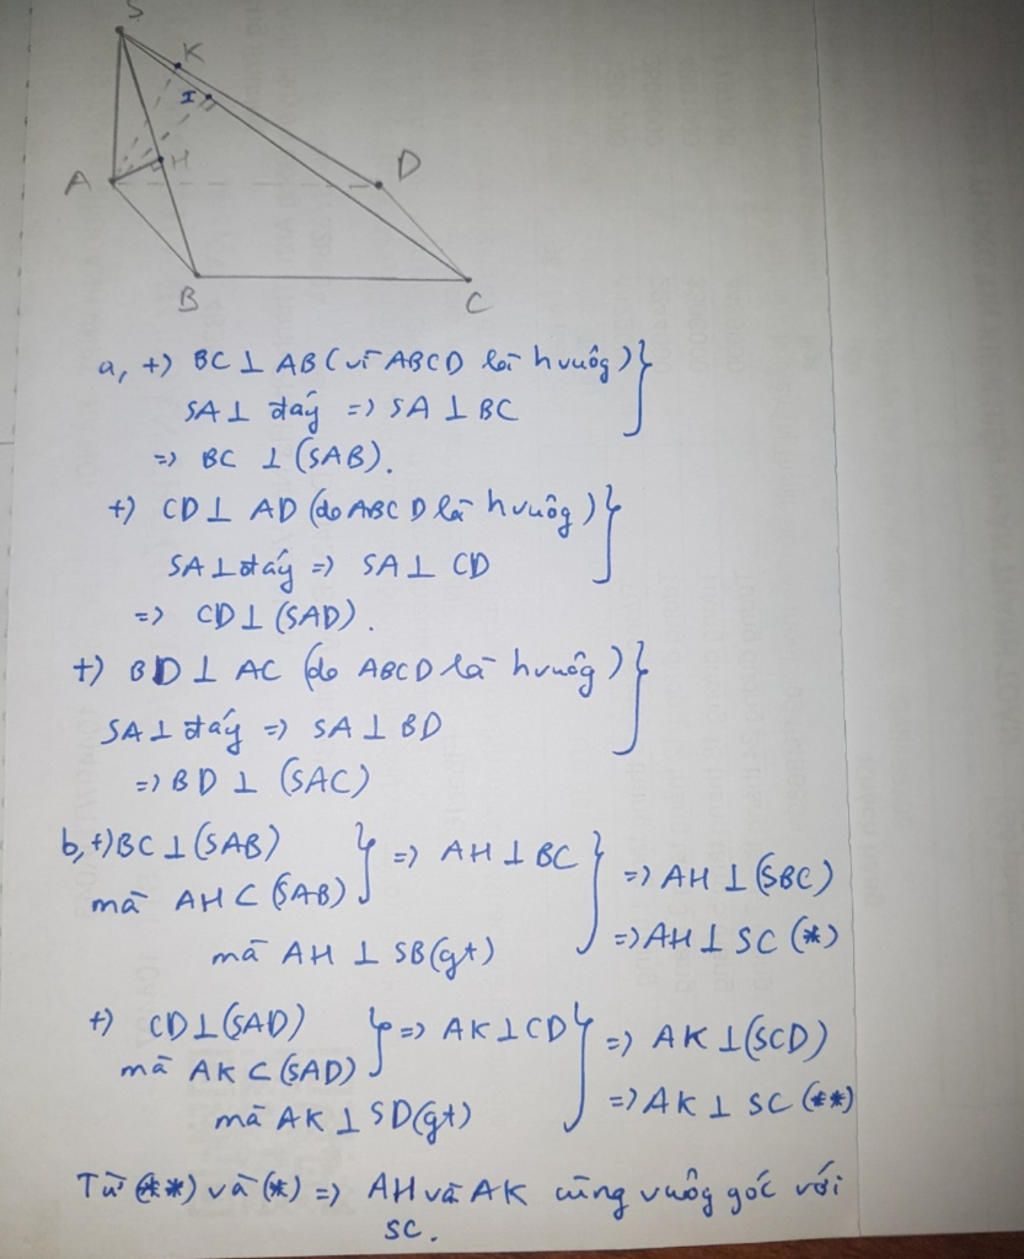 S
K
I
H
A
D
B
C
a, +) BC ⊥ AB (vì ABCD là hvuôg)
SA ⊥ đáy => SA ⊥ BC
=> BC ⊥ (SAB).
+) CD ⊥ AD (do ABCD là hvuôg)
SA ⊥ đáy => SA ⊥ CD
=> CD ⊥ (SAD).
+) BD ⊥ AC (do ABCD là hvuôg)
SA ⊥ đáy => SA ⊥ BD
=> BD ⊥ (SAC)
b, +) BC ⊥ (SAB) } => AH ⊥ BC } => AH ⊥ (SBC)
mà AH ⊂ (SAB)
mà AH ⊥ SB (gt) => AH ⊥ SC (*)
+) CD ⊥ (SAD) } => AK ⊥ CD } => AK ⊥ (SCD)
mà AK ⊂ (SAD)
mà AK ⊥ SD (gt) => AK ⊥ SC (**)
Từ (**) và (*) => AH và AK cùng vuôg góc với
SC.